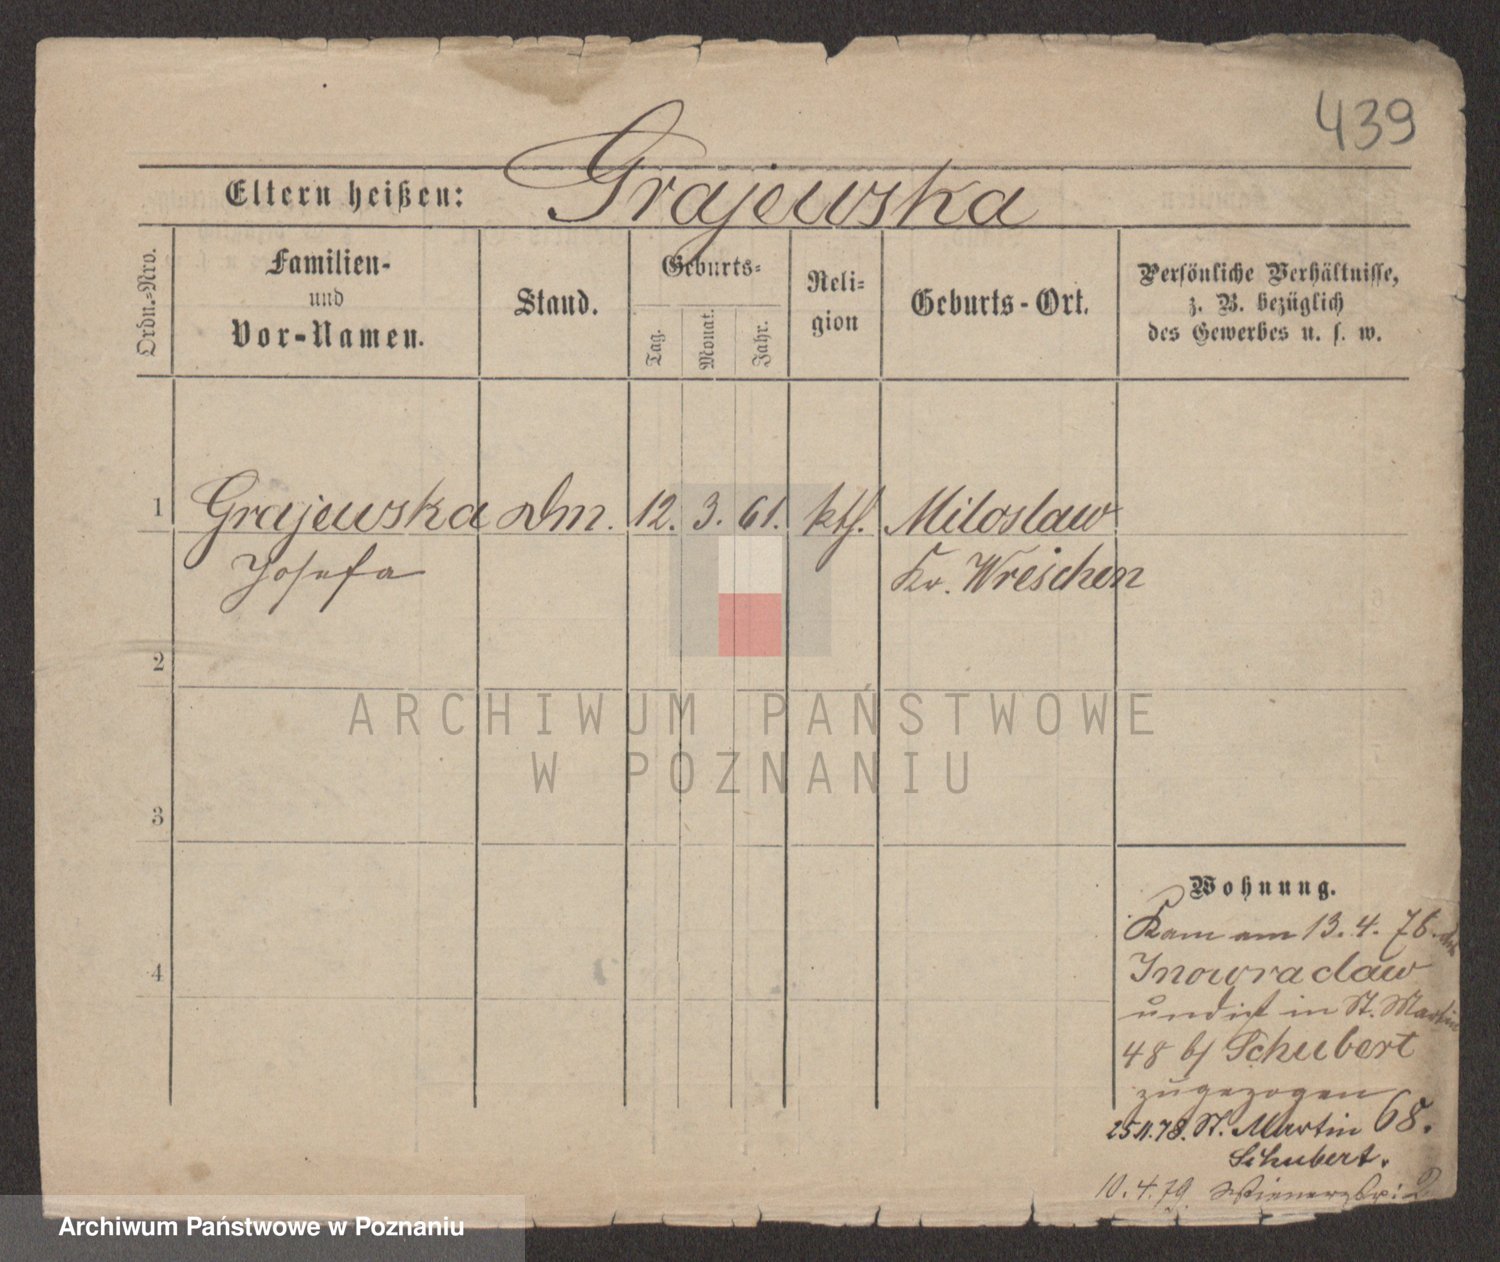 439
Eltern heißen: Grajewska
Ordn.=Nro.
Familien-
und
Vor-Namen.
Stand.
Geburts=
Tag.
Monat.
Jahr.
Reli=
gion
Geburts-Ort.
Persönliche Verhältnisse,
z. B. bezüglich
des Gewerbes u. s. w.
1 Grajewska Dm. 12. 3. 61. kth. Miloslaw
Josefa Kr. Wreschen
2
3
4
Wohnung.
Kam am 13.4.76
Inowraclaw
und ist in St. Martin
48 b/ Schubert
zugezogen
25.11.78. St. Martin 68.
Schubert.
10.4.79
ARCHIWUM PAŃSTWOWE
W POZNANIU
Archiwum Państwowe w Poznaniu